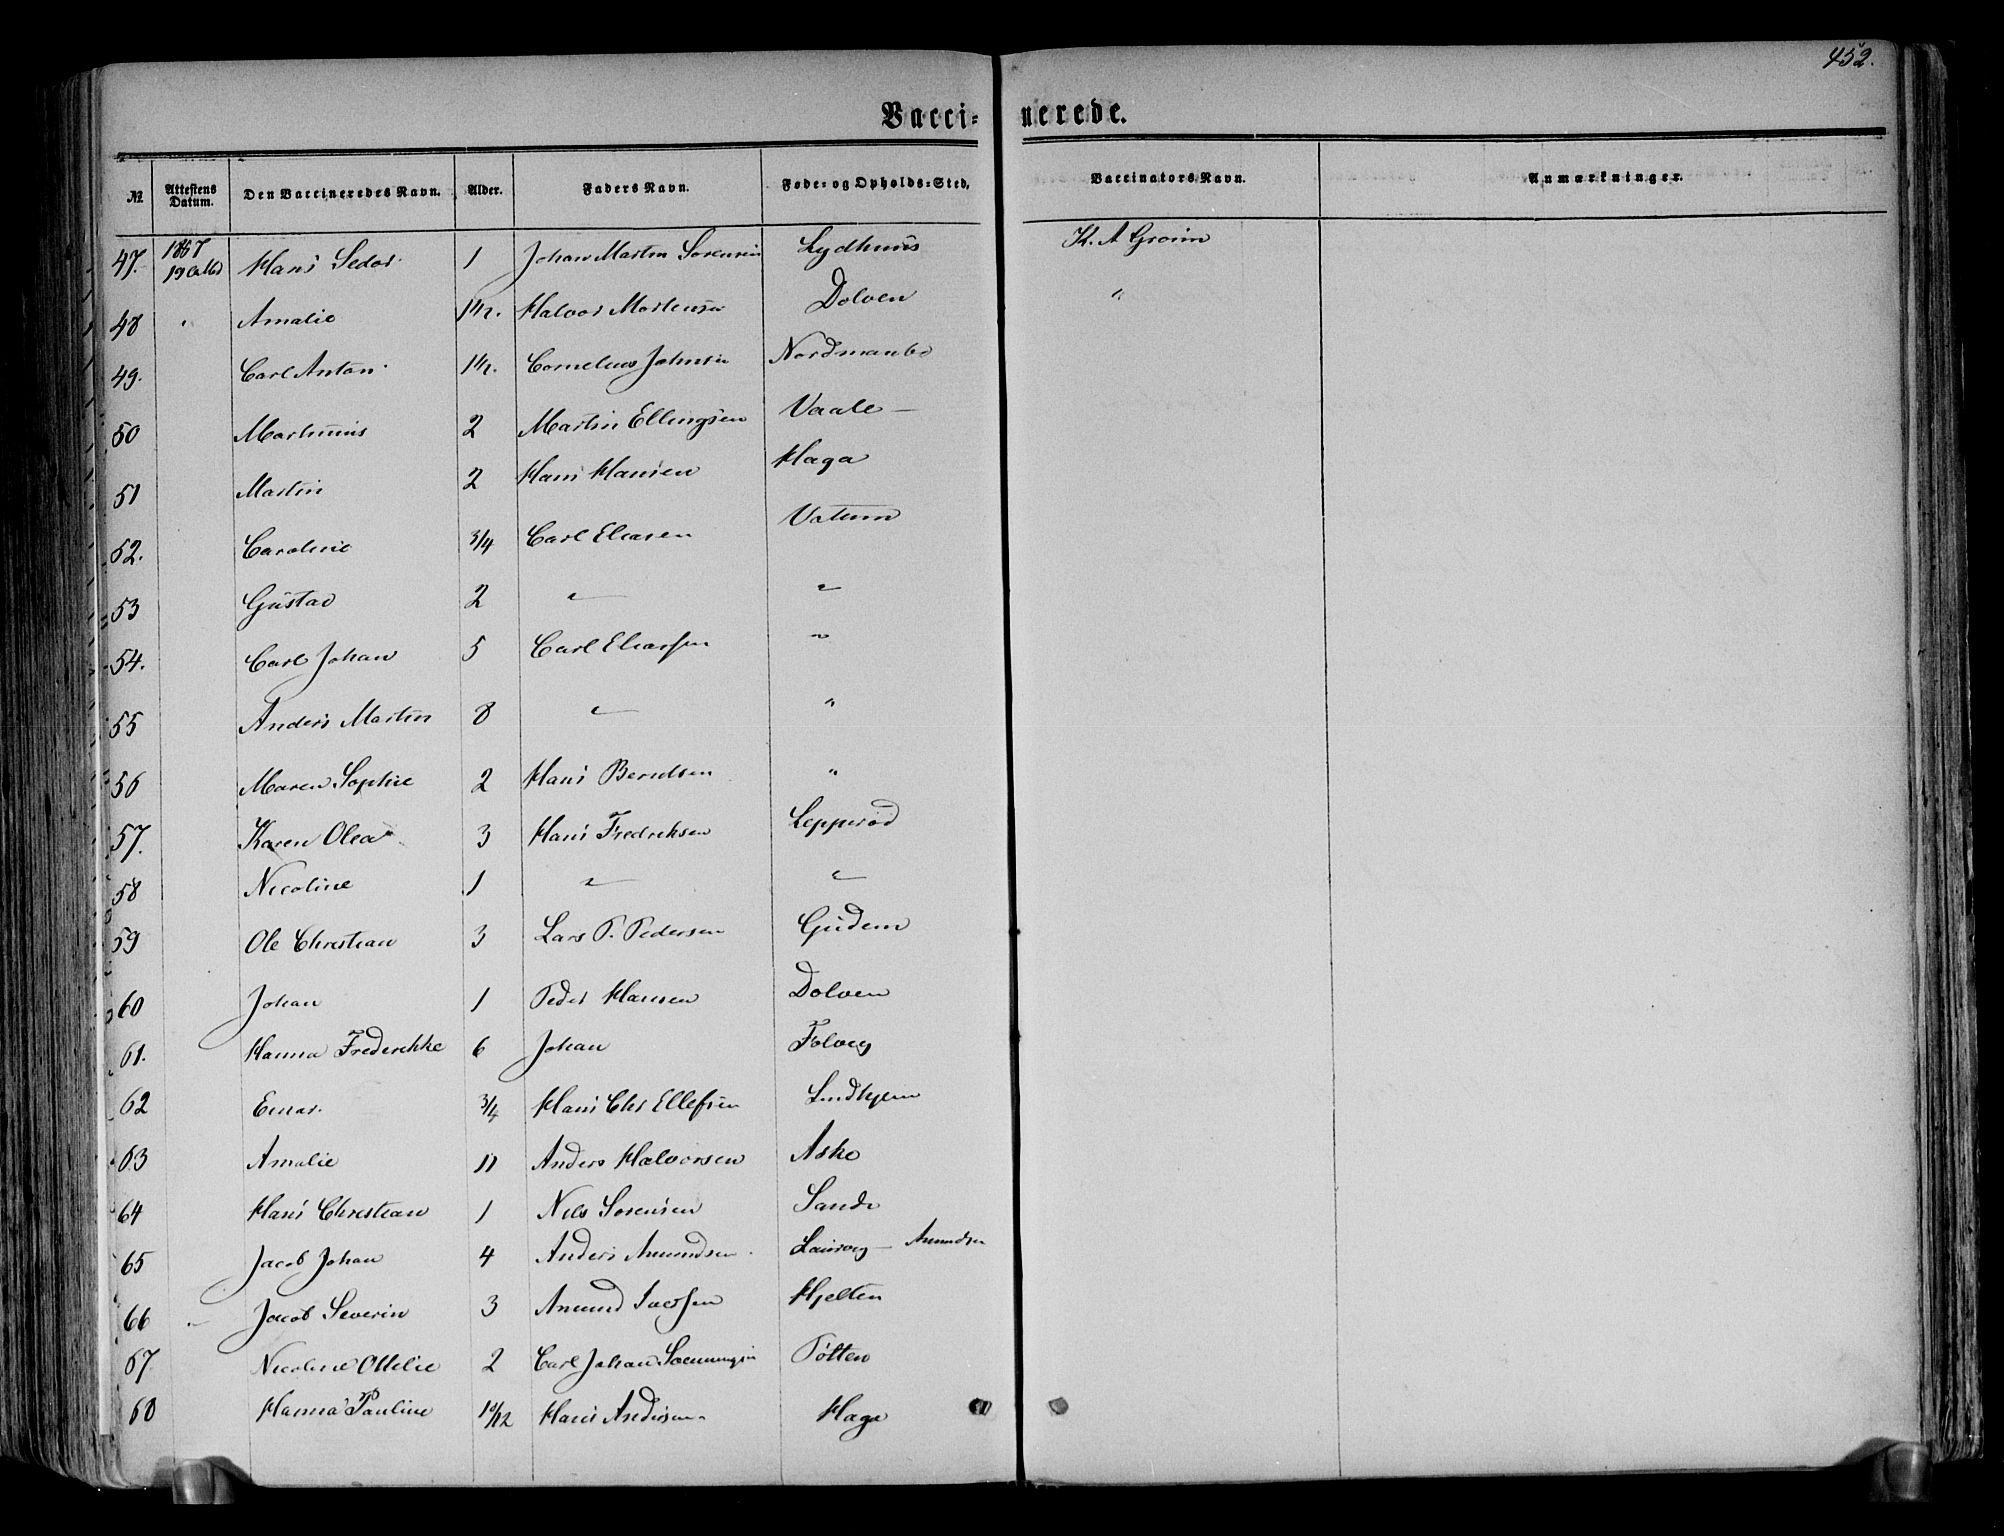 452.
Vacci- nerede.
№ Attestens Datum. Den Vaccineredes Navn. Alder. Faders Navn. Føde- og Opholds-Sted. Vaccinators Navn. Anmærkninger.
47. 1867 19 Hans 1 Johan Martin Sorensen K. A
48 " Amalie 1 1/2. Halvor Mortensen Dolven "
49. Carl Anton. 1 1/2. Cornelius Johnsen
50 Martinius 2 Martin Ellingsen Vaale —
51 Martin 2 Hans Hansen Haga
52. Caroline 3/4 Carl Eliasen
53 Gustav 2 " "
54. Carl Johan 5 Carl Eliassen "
55 Anders Martin 8 " "
56 Maren Sophie 2 Hans Berntsen "
57. Karen Olea 3 Hans Fredreksen Lepperød
58 Nicoline 1 " "
59 Ole Christian 3 Lars P. Pedersen Gudem
60 Johan 1 Peder Hansen Dolven
61. Hanna Frederekke 6 Johan
62 Einar. 3/4 Hans Chr Ellefsen Lindhjem
63 Amalie 11 Anders Halvorsen Aske
64 Hans Christian 1 Nils Sorensen Sande
65 Jacob Johan 4 Anders Amundsen. Laurvig — Amundsen
66 " Jacob Severin 3 Amund Hjelten
67. Nicoline Ottilie 2 Carl Johan Tolten
68 Hanna Pauline 10/12 Hans Andersen Haga